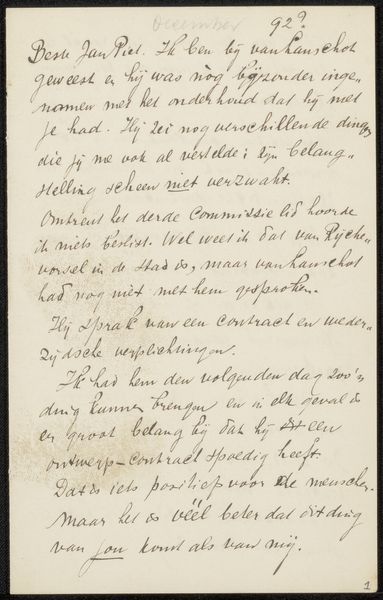 December 92?
Beste Jan Piet. Ik ben bij van Hanschot
geweest en hij was nog bijzonder inge„
nomen met het onderhoud dat hij met
je had. Hij zei nog verschillende dingen
die jij me ook al vertelde: zijn belang„
stelling scheen niet verzwakt.
Omtrent het derde Commissie lid hoorde
ik niets beslist. Wel weet ik dat van Rijcke„
vorsel in de stad is, maar van Hanschot
had nog niet met hem gesproken.
Hij sprak van een contract en weder„
zijdsche verplichtingen.
Ik had hem den volgenden dag zoo'n
ding kunnen brengen en in elk geval is
er groot belang bij dat hij een
ontwerp-contract spoedig heeft.
Dat is iets positiefs voor de menschen.
Maar het is véél beter dat dit ding
van jou komt als van mij.
1